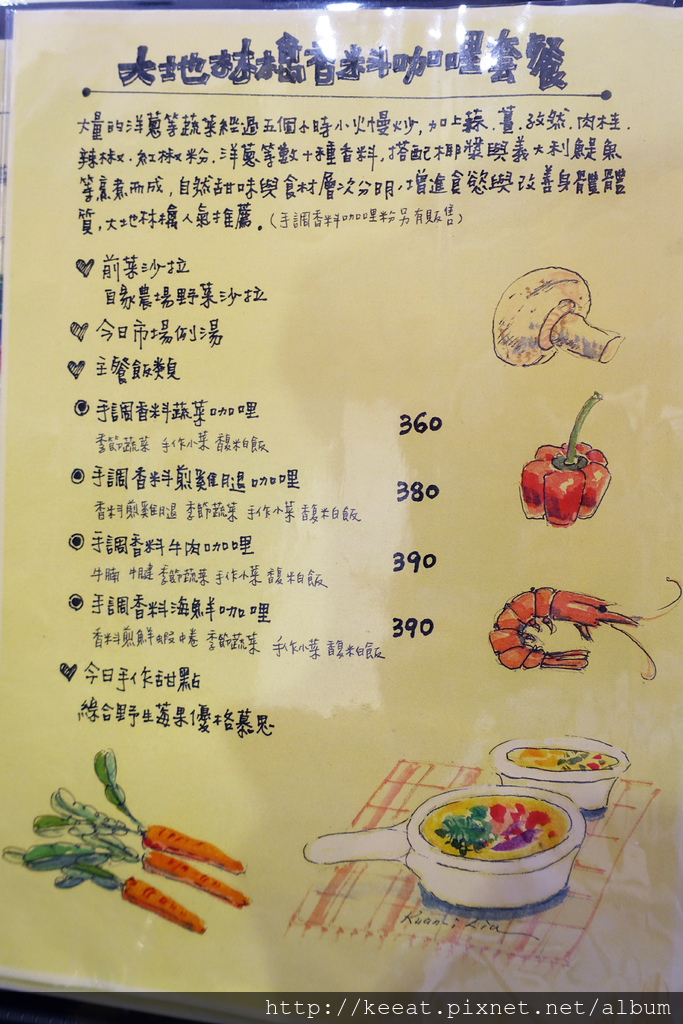 大地林檎香料咖哩套餐
大量的洋蔥等蔬菜經過五個小時小火慢炒,加上蒜.薑.孜然.肉桂.
辣椒.紅椒粉.洋蔥等數十種香料,搭配椰漿與義大利鯷魚
等熬煮而成,自然甜味與食材層次分明,增進食慾與改善身體體
質,大地林檎人氣推薦。(手調香料咖哩粉另有販售)
前菜沙拉
自家農場野菜沙拉
今日市場例湯
主餐飯類
手調香料蔬菜咖哩 360
季節蔬菜 手作小菜 馥米白飯
手調香料煎雞腿咖哩 380
香料煎雞腿 季節蔬菜 手作小菜 馥米白飯
手調香料牛肉咖哩 390
牛腩 牛腱 季節蔬菜 手作小菜 馥米白飯
手調香料海鮮咖哩 390
香料煎鮮蝦中卷 季節蔬菜 手作小菜 馥米白飯
今日手作甜點
綜合野生莓果優格慕思
Kuanhi Liu
http://keeat.pixnet.net/album